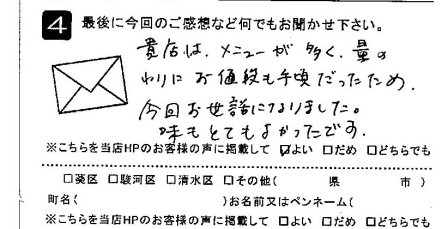 4 最後に今回のご感想など何でもお聞かせ下さい。
貴店は、メニューが多く、量の
わりにお値段も手頃だったため、
今回お世話になりました。
味もとてもよかったです。
※こちらを当店HPのお客様の声に掲載して ☑よい □だめ □どちらでも
□葵区 □駿河区 □清水区 □その他( 県 市)
町名( )お名前又はペンネーム(
※こちらを当店HPのお客様の声に掲載して □よい □だめ □どちらでも